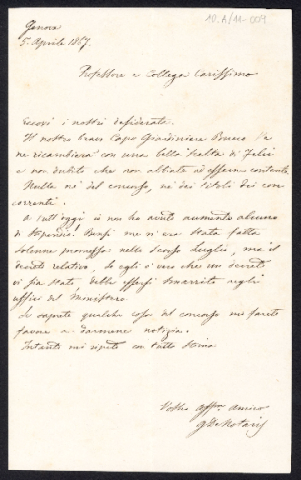 10.A/11-009
Genova
5. Aprile 1867.
Professore e Collega Carissimo
Eccovi i nostri desiderata.
Il nostro bravo Capo Giardiniere Bucco
ne ricambierà con una bella scelta di Felci
e non dubito che non abbiate ad essere contento.
Nulla so del concorso, nè dei titoli dei con
correnti.
A tutt'oggi io non ho avuto aumento alcuno
di stipendio! Bensì me n'era stata fatta
solenne promessa nello scorso Luglio, ma il
decreto relativo, se egli è vero che un decreto
vi sia stato, debbe essersi smarrito negli
uffizi del Ministero.
Se sapeste qualche cosa del concorso mi fareste
favore a darmene notizia.
Intanto mi ripeto con tutta stima
Vostro affmo amico
G. De Notaris